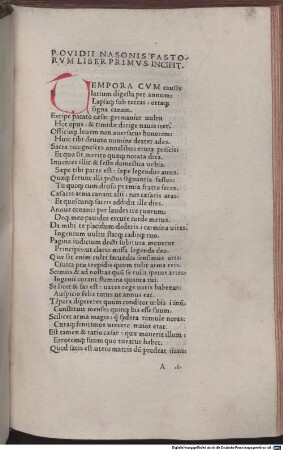 P. OVIDII NASONIS FASTO-
RVM LIBER PRIMVS INCIPIT.
TEMPORA CVM causis
latium digesta per annum:
Lapsaq; sub terras: ortaq;
signa canam.
Excipe pacato cæsar germanice uultu
Hoc opus: & timidæ dirige nauis iter.
Officioq; leuem non auersatus honorem:
Huic tibi deuoto numine dexter ades.
Sacra recognosces annalibus eruta priscis:
Et quo sit merito quæq; notata dies.
Inuenies illic & festa domestica uobis.
Sæpe tibi pater est: sæpe legendus auus.
Quæq; ferunt illi pictos signantia fastos:
Tu quoq; cum druso præmia fratre feres.
Cæsaris arma canant alii: nos cæsaris aras:
Et quoscunq; sacris addidit ille dies.
Annue conanti per laudes ire tuorum:
Deq; meo pauidos excute corde metus.
Da mihi te placidum: dederis i carmina uires.
Ingenium uultu statq; caditq; tuo.
Pagina iudicium docti subitura mouetur
Principis: ut clario missa legenda deo.
Quæ sit enim culti facundia sensimus oris:
Ciuica pro trepidis quum tulit arma reis.
Scimus & ad nostras quū se tulit ipetus artes:
Ingenii currant flumina quanta tui.
Si licet & fas est: uates rege uatis habenas:
Auspicio felix totus ut annus eat.
Tēpora digereret quum conditor urbis: i āno
Constituit menses quinq; bis esse suum.
Scilicet arma magis: q̄ sydera romule noras:
Curaq; finitimos uincere maior erat.
Est tamen & ratio cæsar: quæ mouerit illum:
Erroremq; suum quo tueatur habet.
Quod satis est utero matris dū prodeat ifantis
A